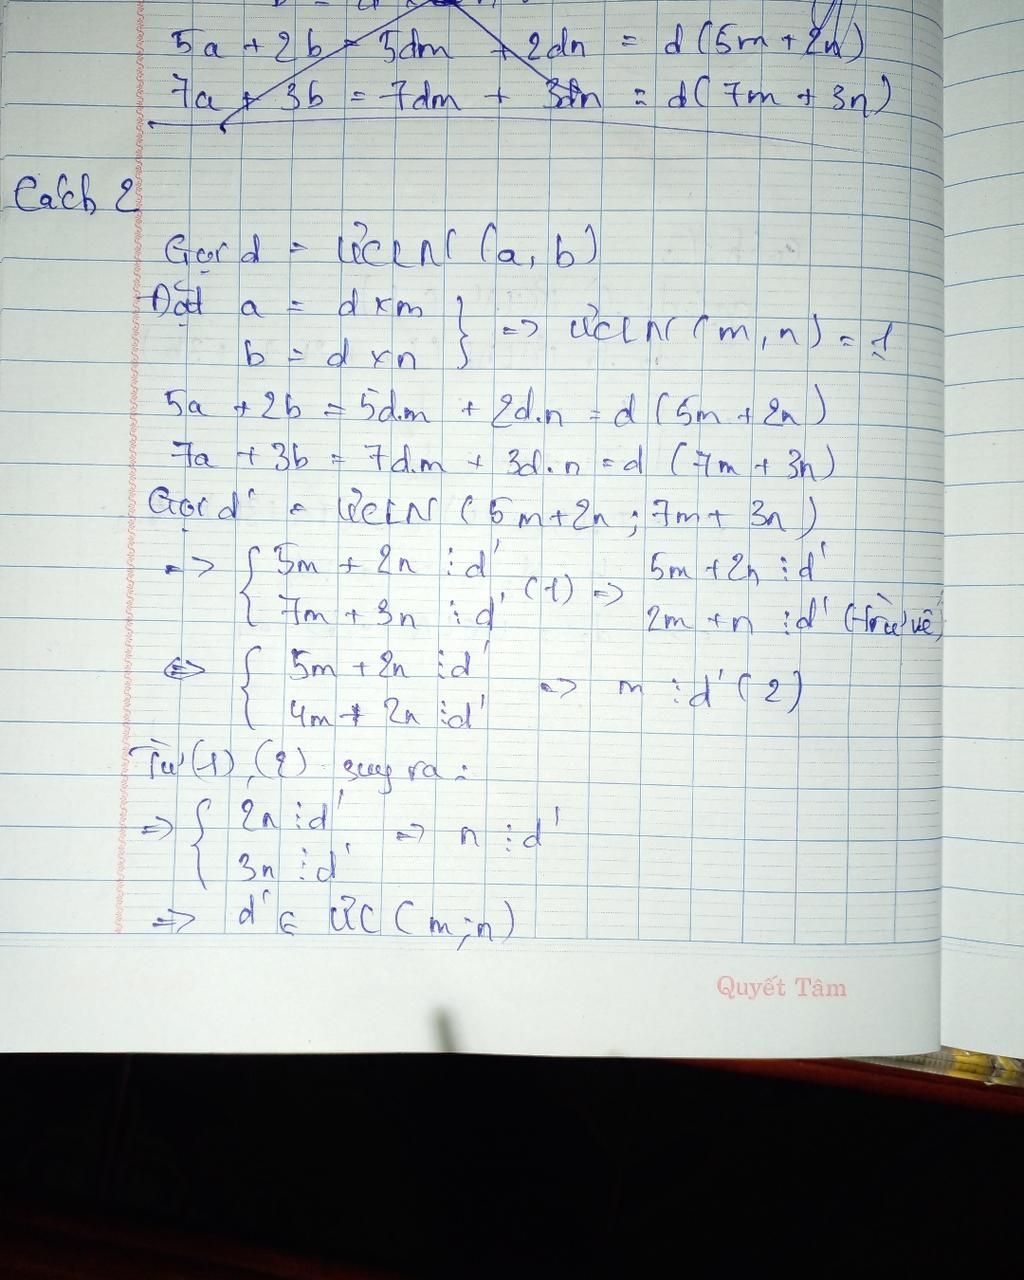 5a + 2b = 5dm + 2dn = d(5m + 2n)
7a + 3b = 7dm + 3dn = d(7m + 3n)
Cách 2
Gọi d = ƯCLN (a, b)
Đặt a = d x m
b = d x n } => ƯCLN (m, n) = 1
5a + 2b = 5d.m + 2d.n = d (5m + 2n)
7a + 3b = 7d.m + 3d.n = d (7m + 3n)
Gọi d' = ƯCLN (5m + 2n ; 7m + 3n)
=> { 5m + 2n ⋮ d'
7m + 3n ⋮ d' (1) => 5m + 2n ⋮ d'
2m + n ⋮ d' (trừ vế)
<=> { 5m + 2n ⋮ d'
4m + 2n ⋮ d' => m ⋮ d' (2)
Từ (1), (2) suy ra :
=> { 2n ⋮ d'
3n ⋮ d' => n ⋮ d'
=> d' ∈ ƯC (m ; n)
Quyết Tâm